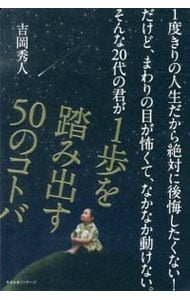 1度きりの人生だから絶対に後悔したくない!
だけど、まわりの目が怖くて、なかなか動けない。
そんな20代の君が
1歩を
踏み出す
50のコトバ
吉岡秀人